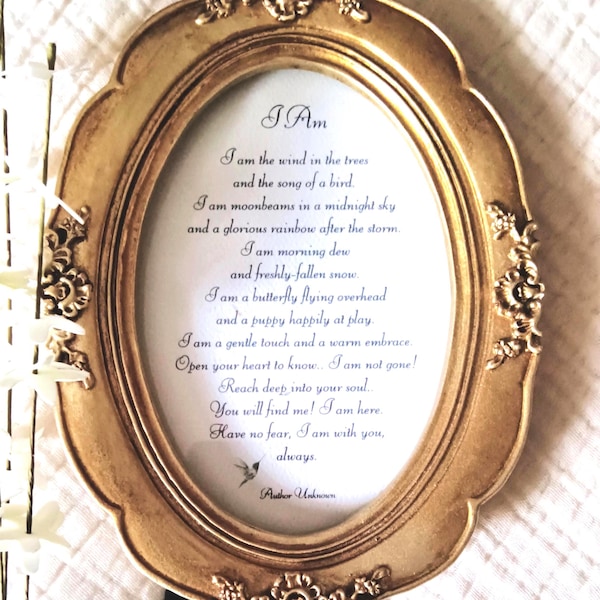 I Am
I am the wind in the trees
and the song of a bird.
I am moonbeams in a midnight sky
and a glorious rainbow after the storm.
I am morning dew
and freshly-fallen snow.
I am a butterfly flying overhead
and a puppy happily at play.
I am a gentle touch and a warm embrace.
Open your heart to know.. I am not gone!
Reach deep into your soul..
You will find me! I am here.
Have no fear, I am with you,
always.
Author Unknown